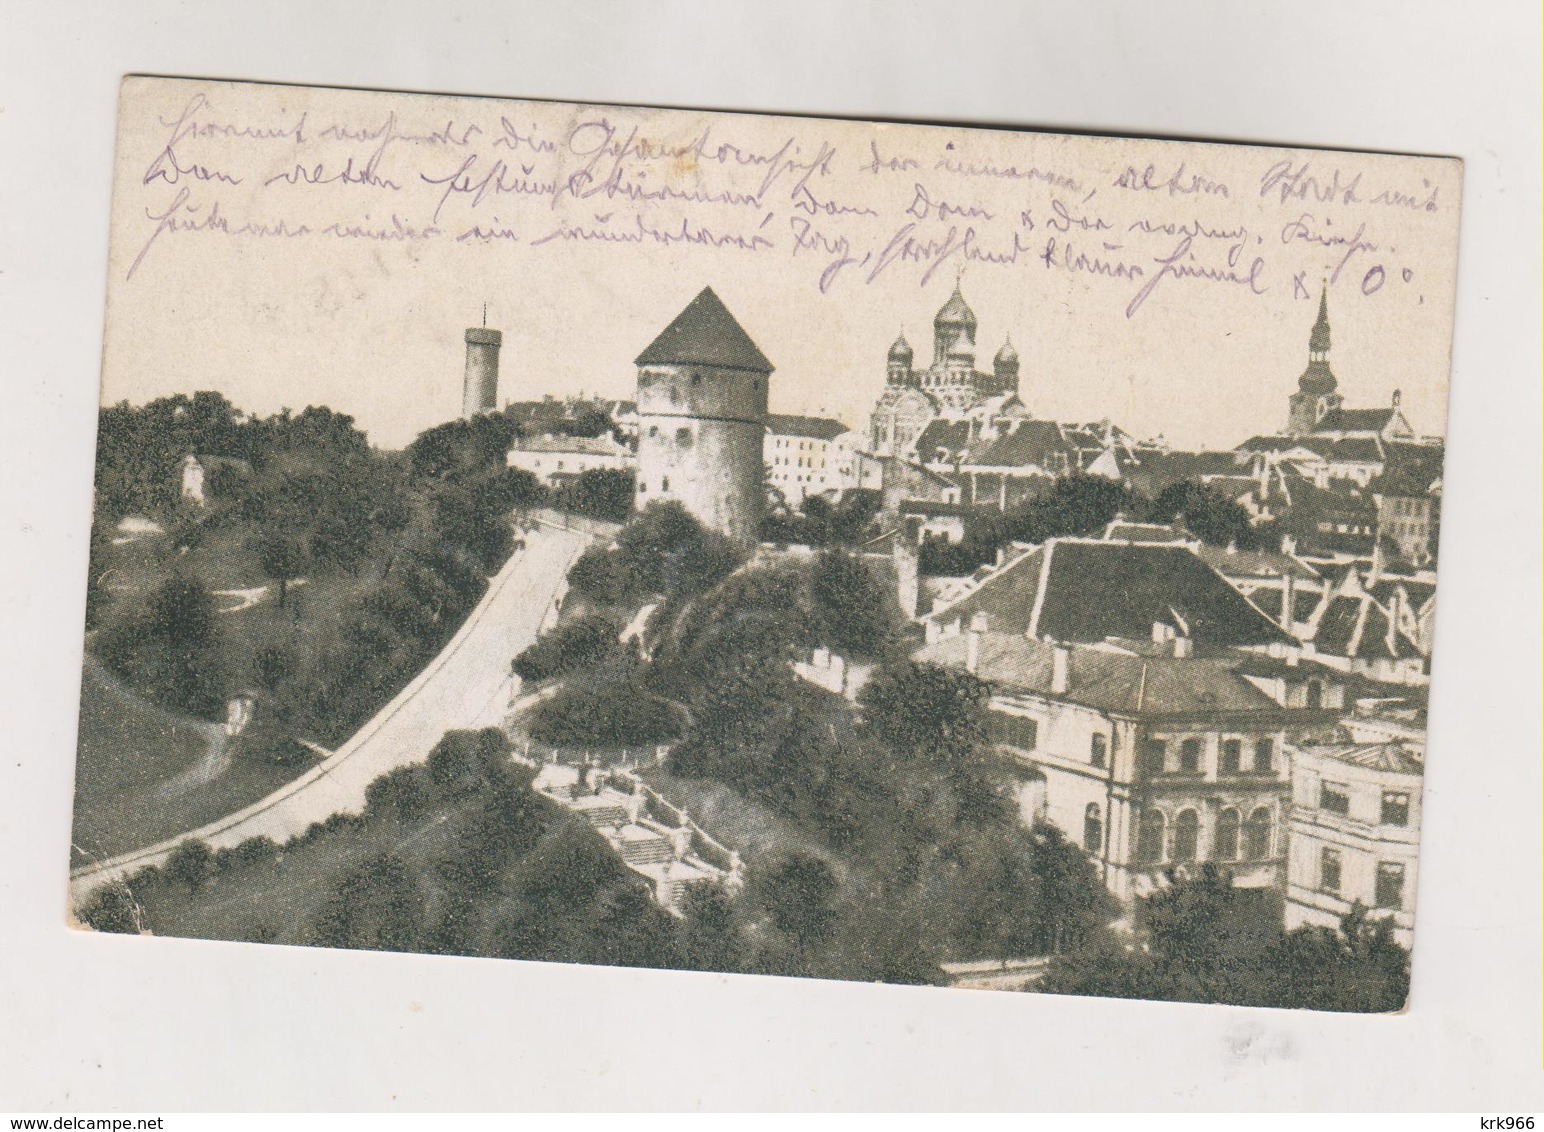 Hiermit nochmals die Gesamtansicht der inneren, alten Stadt mit
den alten Festungstürmen, dem Dom & der evang. Kirche.
Heute war wieder ein wunderbarer Tag, strahlend klarer Himmel & 0°.
delcampe.net
krk966